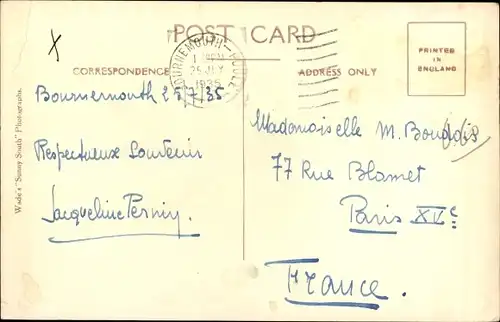 POST CARD
BOURNEMOUTH - POOLE
25 JLY
1935
PRINTED
IN
ENGLAND
CORRESPONDENCE
ADDRESS ONLY
Wade's "Sunny South" Photographs.
X
Bournemouth 25/7/35
Respectueux Souvenir
Jacqueline Perny.
Mademoiselle M.
77 Rue Blomet
Paris XVe
France.